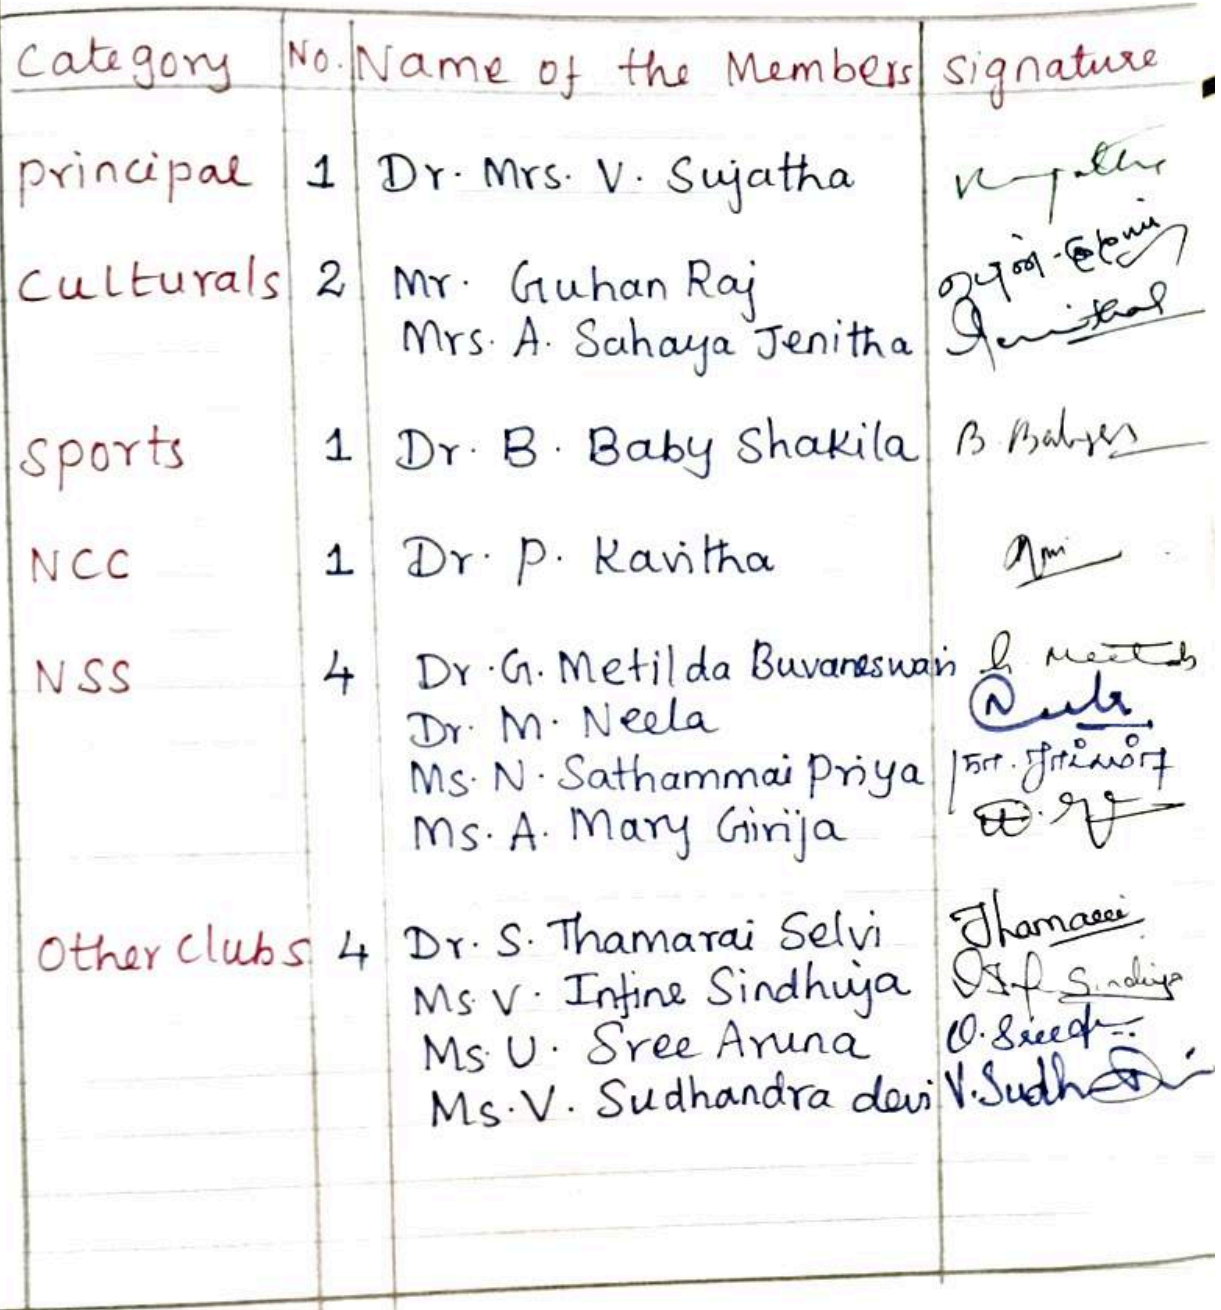 Category No. Name of the Members signature
principal 1 Dr. Mrs. V. Sujatha
Culturals 2 Mr. Guhan Raj
Mrs. A. Sahaya Jenitha
sports 1 Dr. B. Baby Shakila
NCC 1 Dr. P. Kavitha
NSS 4 Dr. G. Metilda Buvaneswari
Dr. M. Neela
Ms. N. Sathammai Priya
Ms. A. Mary Girija
Other Clubs 4 Dr. S. Thamarai Selvi Thamarai
Ms. V. Infine Sindhuja
Ms. U. Sree Aruna
Ms. V. Sudhandra devi V. Sudh